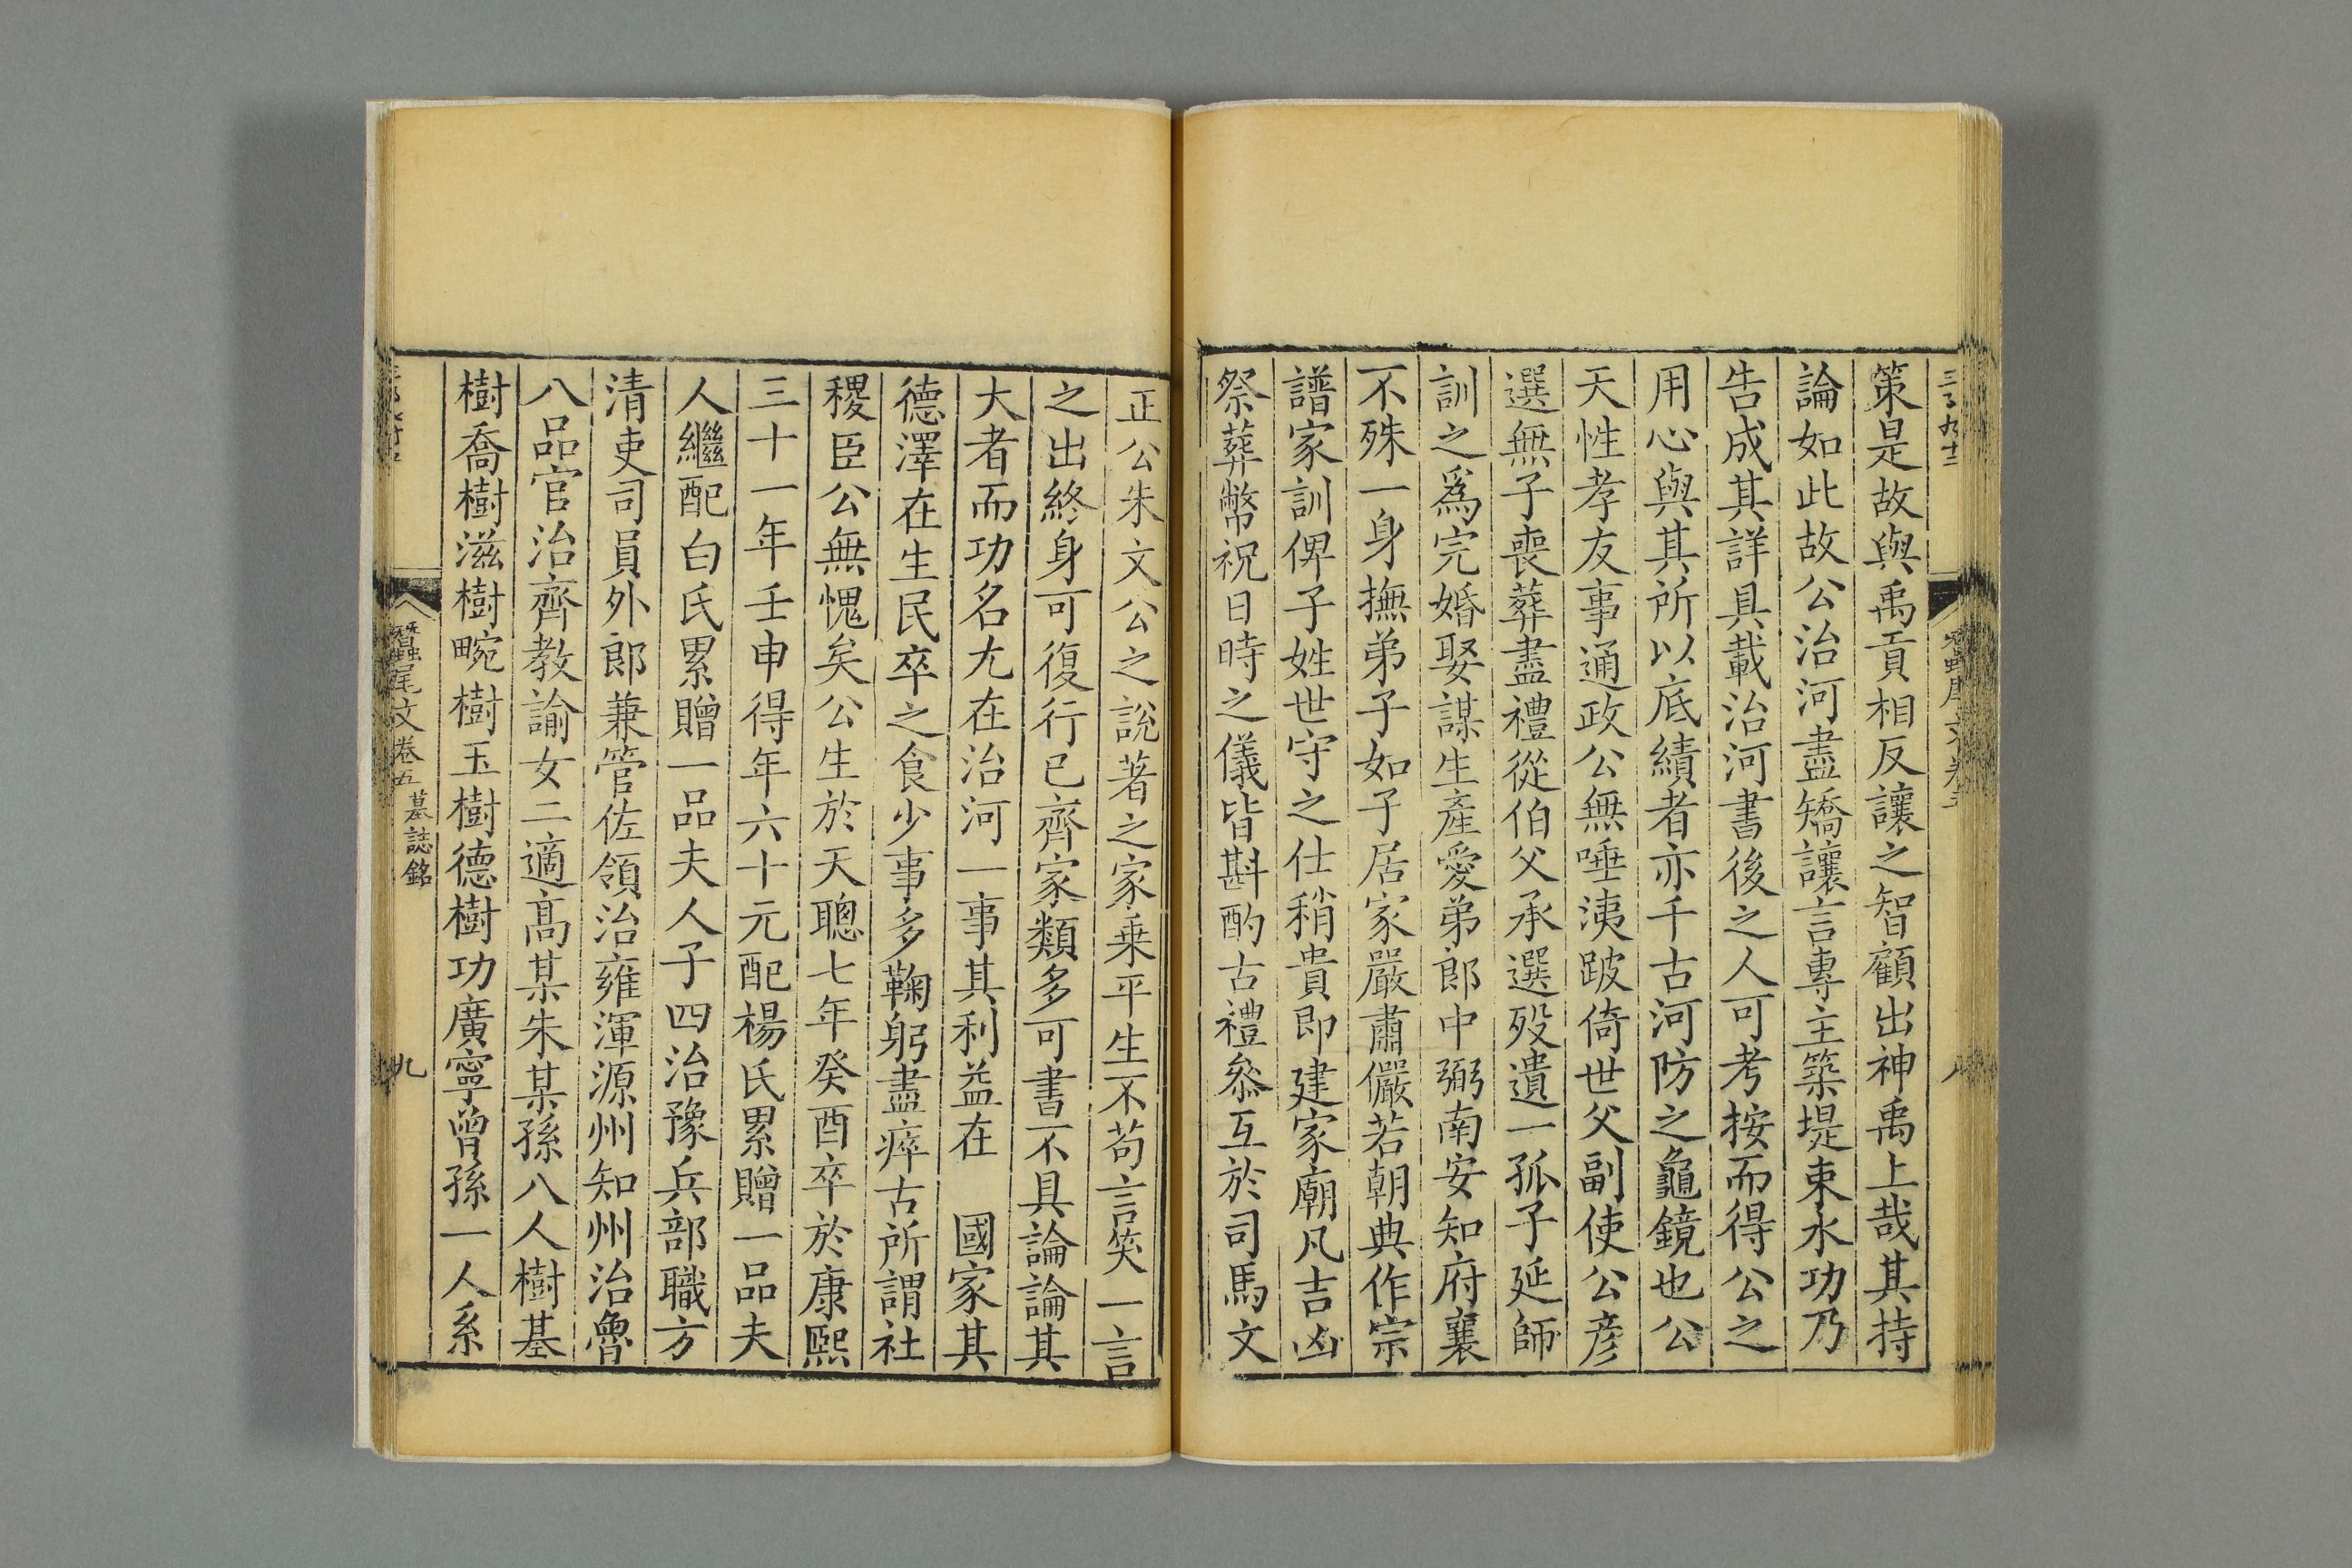 策是故與禹貢相反讓之智顧出神禹上哉其持
論如此故公治河盡矯讓言專主築堤束水功乃
告成其詳具載治河書後之人可考按而得公之
用心與其所以底績者亦千古河防之龜鏡也公
天性孝友事通政公無唾洟跛倚世父副使公彦
選無子喪葬盡禮從伯父承選歿遺一孤子延師
訓之爲完婚娶謀生產愛弟郎中弼南安知府襄
不殊一身撫弟子如子居家嚴肅儼若朝典作宗
譜家訓俾子姓世守之仕稍貴即建家廟凡吉凶
祭葬幣祝日時之儀皆斟酌古禮叅互於司馬文
正公朱文公之說著之家乗平生不苟言笑一言
之出終身可復行已齊家類多可書不具論論其
大者而功名尤在治河一事其利益在　國家其
德澤在生民卒之食少事多鞠躬盡瘁古所謂社
稷臣公無愧矣公生於天聰七年癸酉卒於康熙
三十一年壬申得年六十元配楊氏累贈一品夫
人繼配白氏累贈一品夫人子四治豫兵部職方
清吏司員外郎兼管佐領治雍渾源州知州治魯
八品官治齊教諭女二適高某朱某孫八人樹基
樹喬樹滋樹畹樹玉樹德樹功廣寧曾孫一人系
蠶尾文卷五 墓誌銘 九